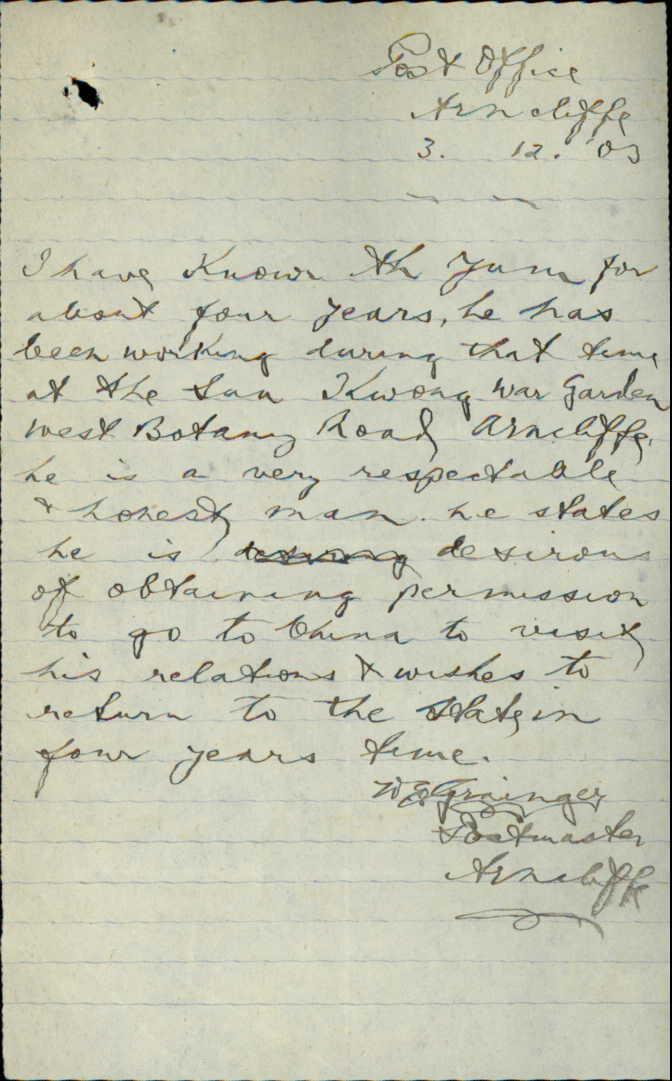 Post Office
Arncliffe
3. 12. '03
I have Known Ah Yum for
about four years, he has
been working during that time
at the Sun Kwong War Garden
West Botany Road Arncliffe,
he is a very respectable
& honest man. he states
he is desirous
of obtaining permission
to go to China to visit
his relations & wishes to
return to the State in
four years time.
W E Grainger
Postmaster
Arncliffe